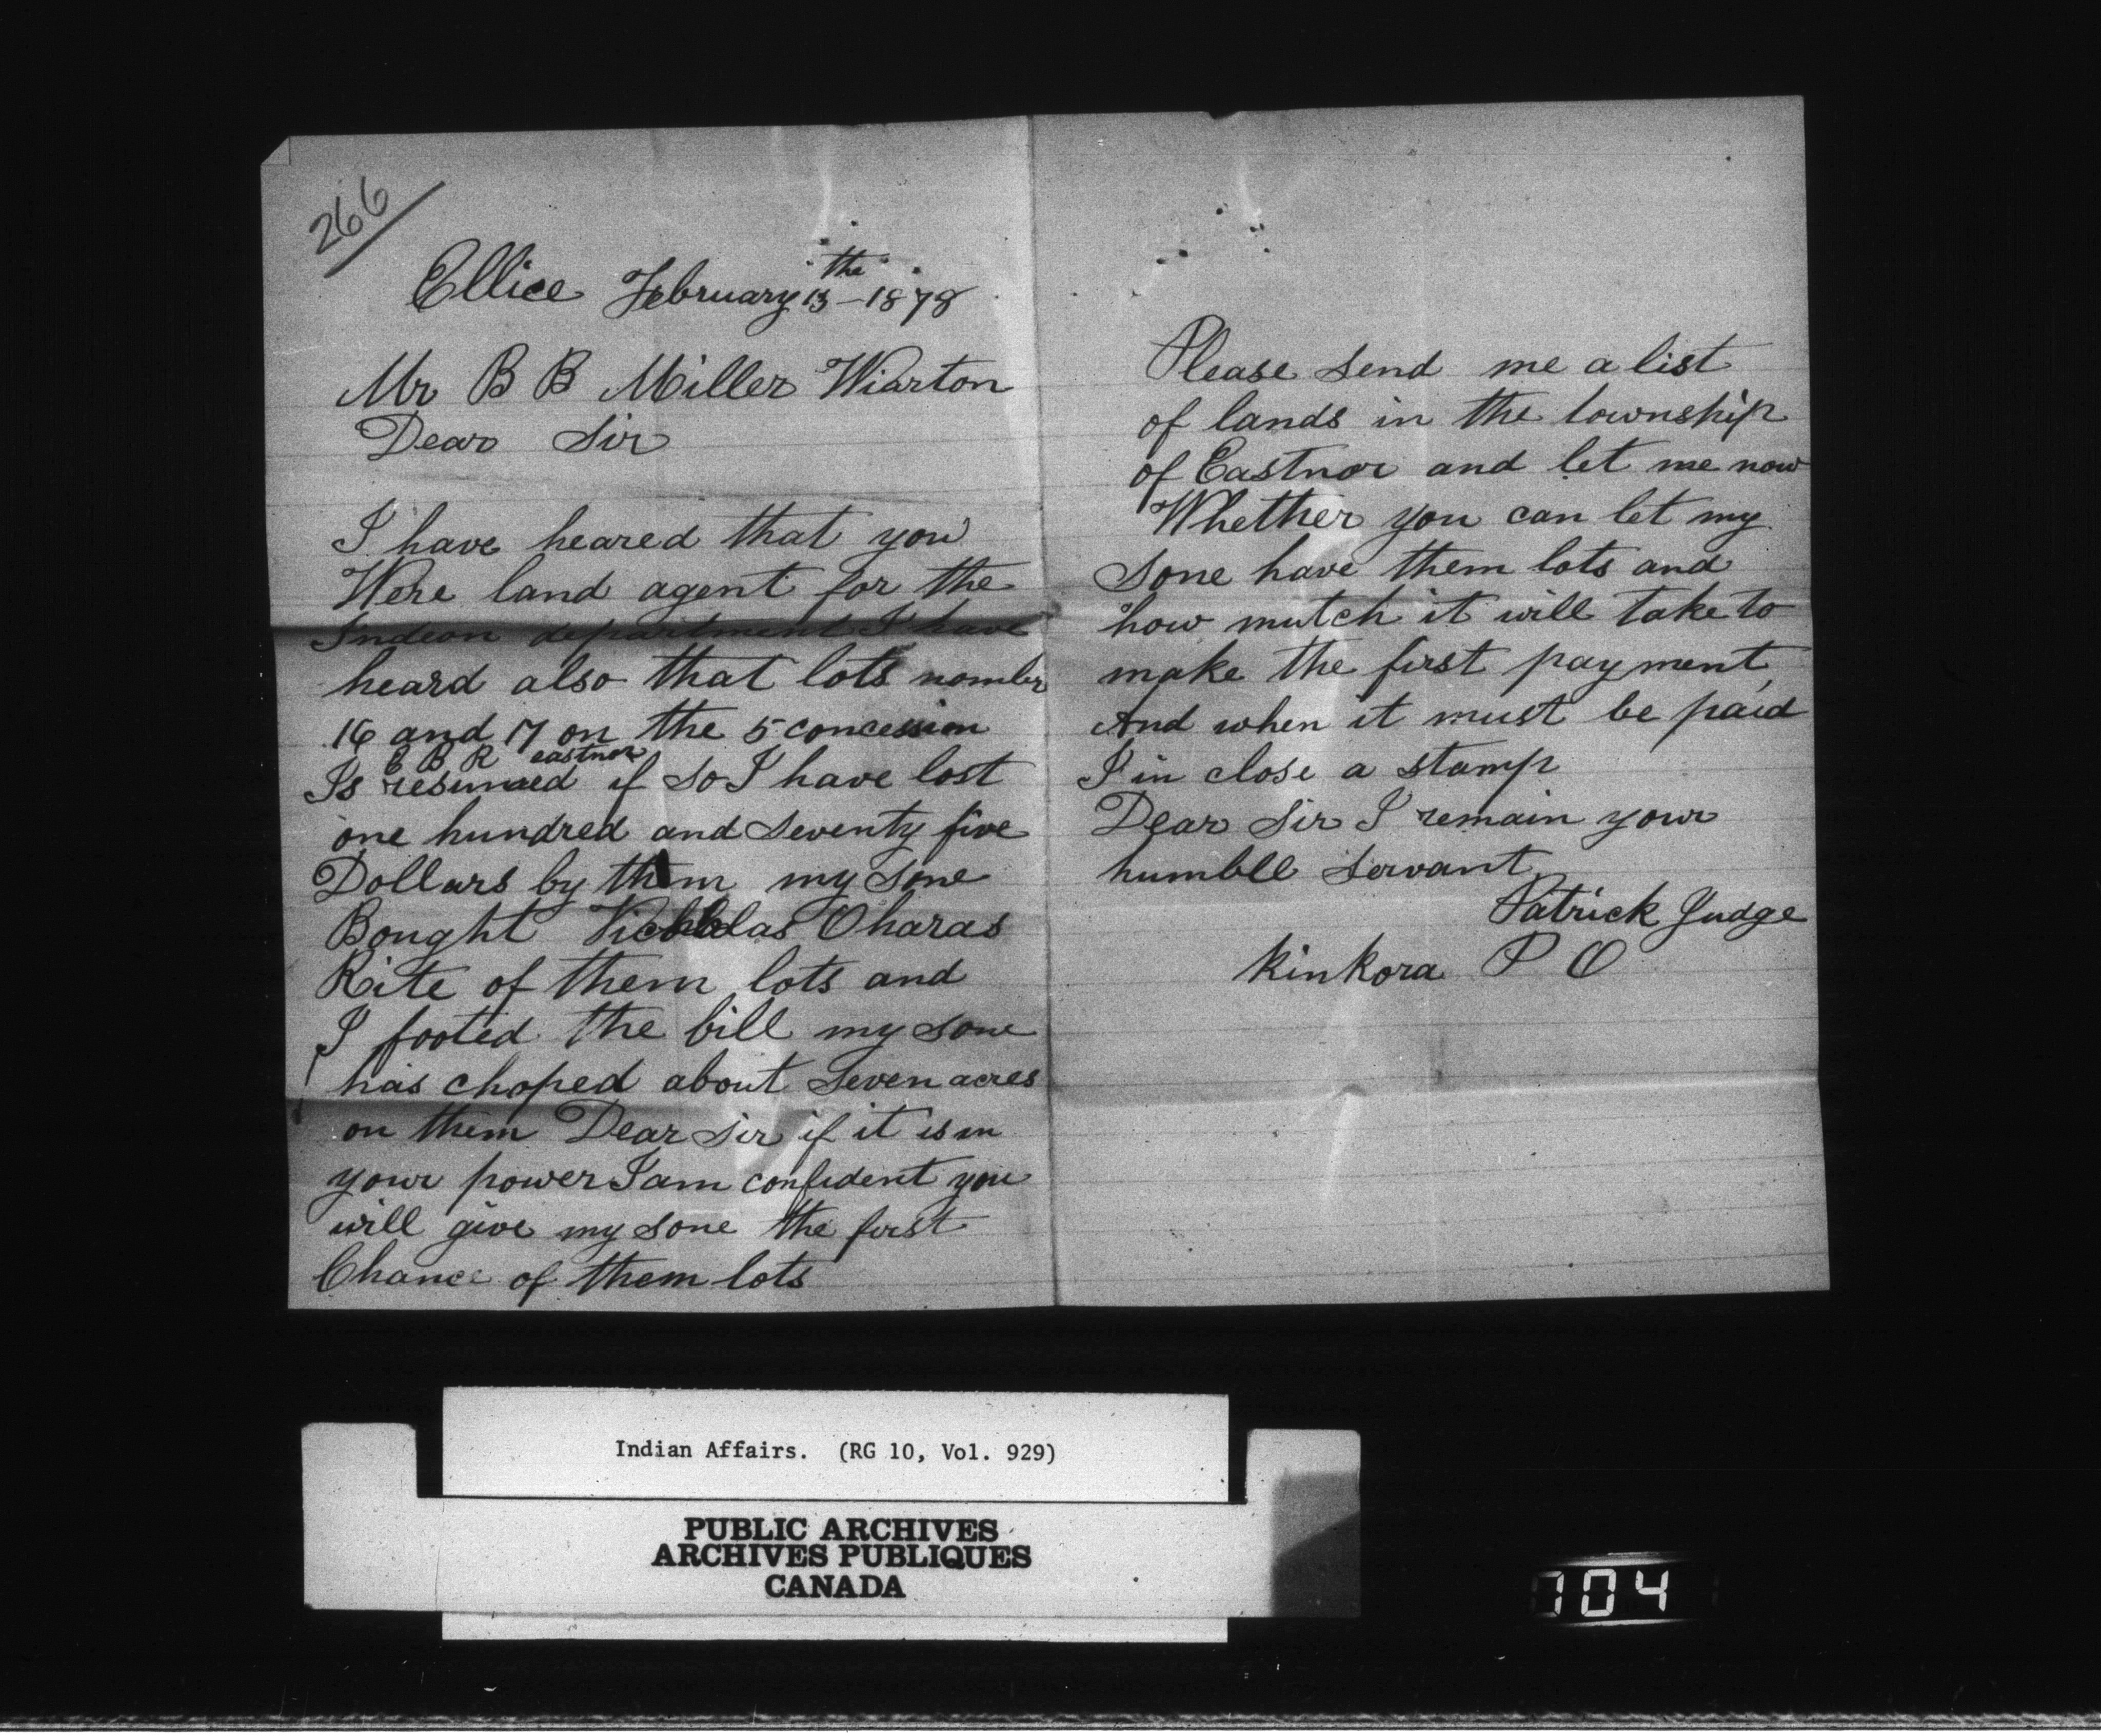 266
Ellice February 13the 1878
Mr B B Miller Wiarton
Dear Sir
I have heared that you
Were land agent for the
Indean department I have
heard also that lots nomber
16 and 17 on the 5 concession
E B R eastnor
Is resumed if so I have lost
one hundred and seventy five
Dollars by them my sone
Bought Nicholas Oharas
Rite of them lots and
I footed the bill my sone
has choped about Seven acres
on them Dear Sir if it is in
your power I am confident you
will give my sone the first
Chance of them lots
Please send me a list
of lands in the township
of Eastnor and let me now
Whether you can let my
Sone have them lots and
how mutch it will take to
make the first payment,
And when it must be paid
I in close a stamp
Dear Sir I remain your
humble servant
Patrick Judge
Kinkora P O
Indian Affairs. (RG 10, Vol. 929)
PUBLIC ARCHIVES
ARCHIVES PUBLIQUES
CANADA
704